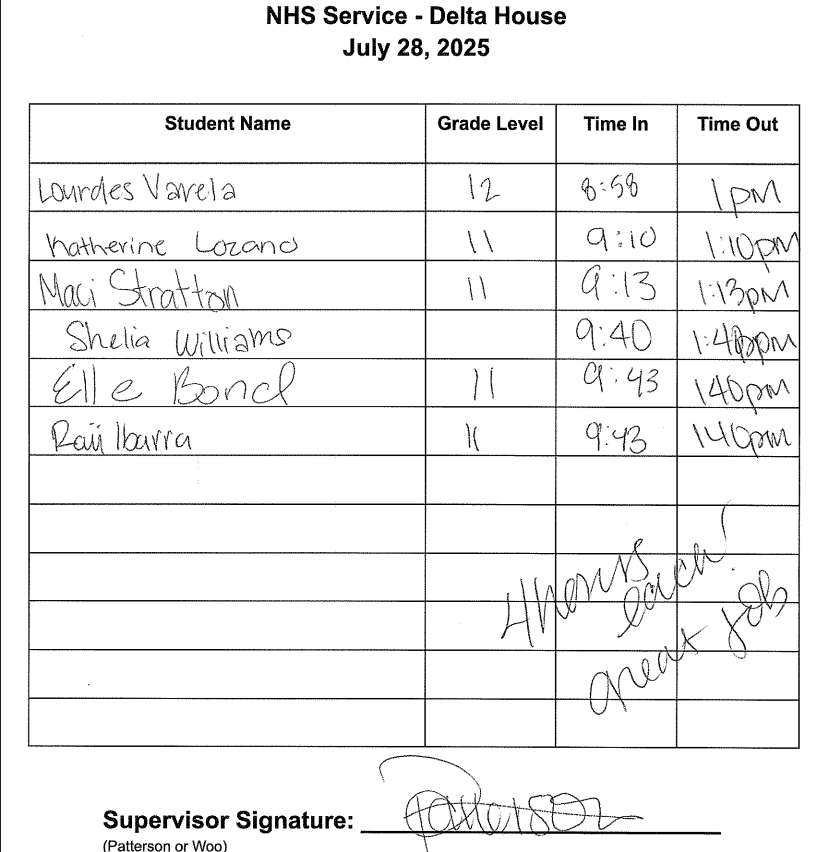 NHS Service - Delta House
July 28, 2025
Student Name Grade Level Time In Time Out
Lourdes Varela 12 8:58 1pm
Katherine Lozano 11 9:10 1:10pm
Maci Stratton 11 9:13 1:13pm
Shelia Williams 9:40 1:40pm
Elle Bond 11 9:43 140pm
Raii Ibarra 11 9:43 140pm
4 hours
each!
great job
Supervisor Signature: Patterson
(Patterson or Woo)